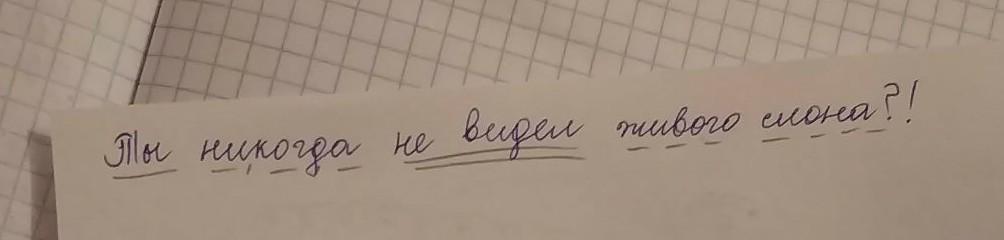 Ты никогда не видел живого слона?!